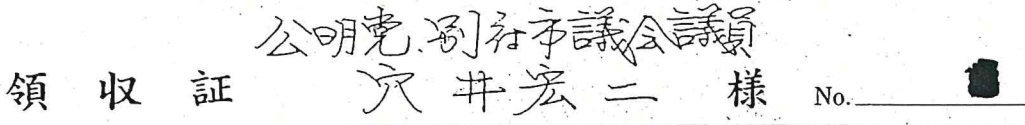 公明党.別府市議会議員
領収証 穴井宏二 様 No.